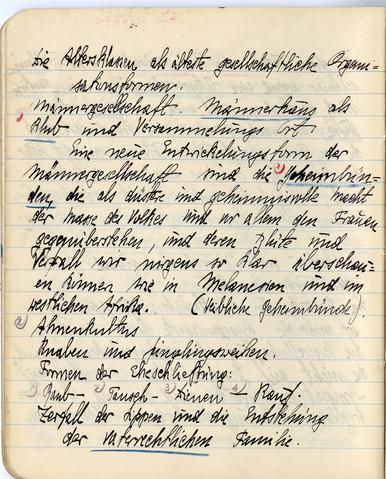 Die Altersklassen als älteste gesellschaftliche Organi-
sationsformen.
Männergesellschaft Männerhaus als
Klub und Versammelungs Ort
Eine neue Entwickelungsform der
Männergesellschaft sind die Geheimbün-
den, die als düstre und geheimnisvolle Macht
der Masse des Volkes und vor allem den Frauen
gegenüberstehen, und deren Blüte und
Verfall wir nirgens so klar überschau-
en können wie in Melanesien und im
westlichen Afrika. (Weibliche Geheimbünde).
Ahnenkultus
Knaben und Jünglingsweihen.
Formen der Eheschließung:
1) Raub – 2) Tausch – 3) Dienen – 4) Kauf.
Zerfall der Sippen und die Entstehung
der vaterrechtlichen Familie.